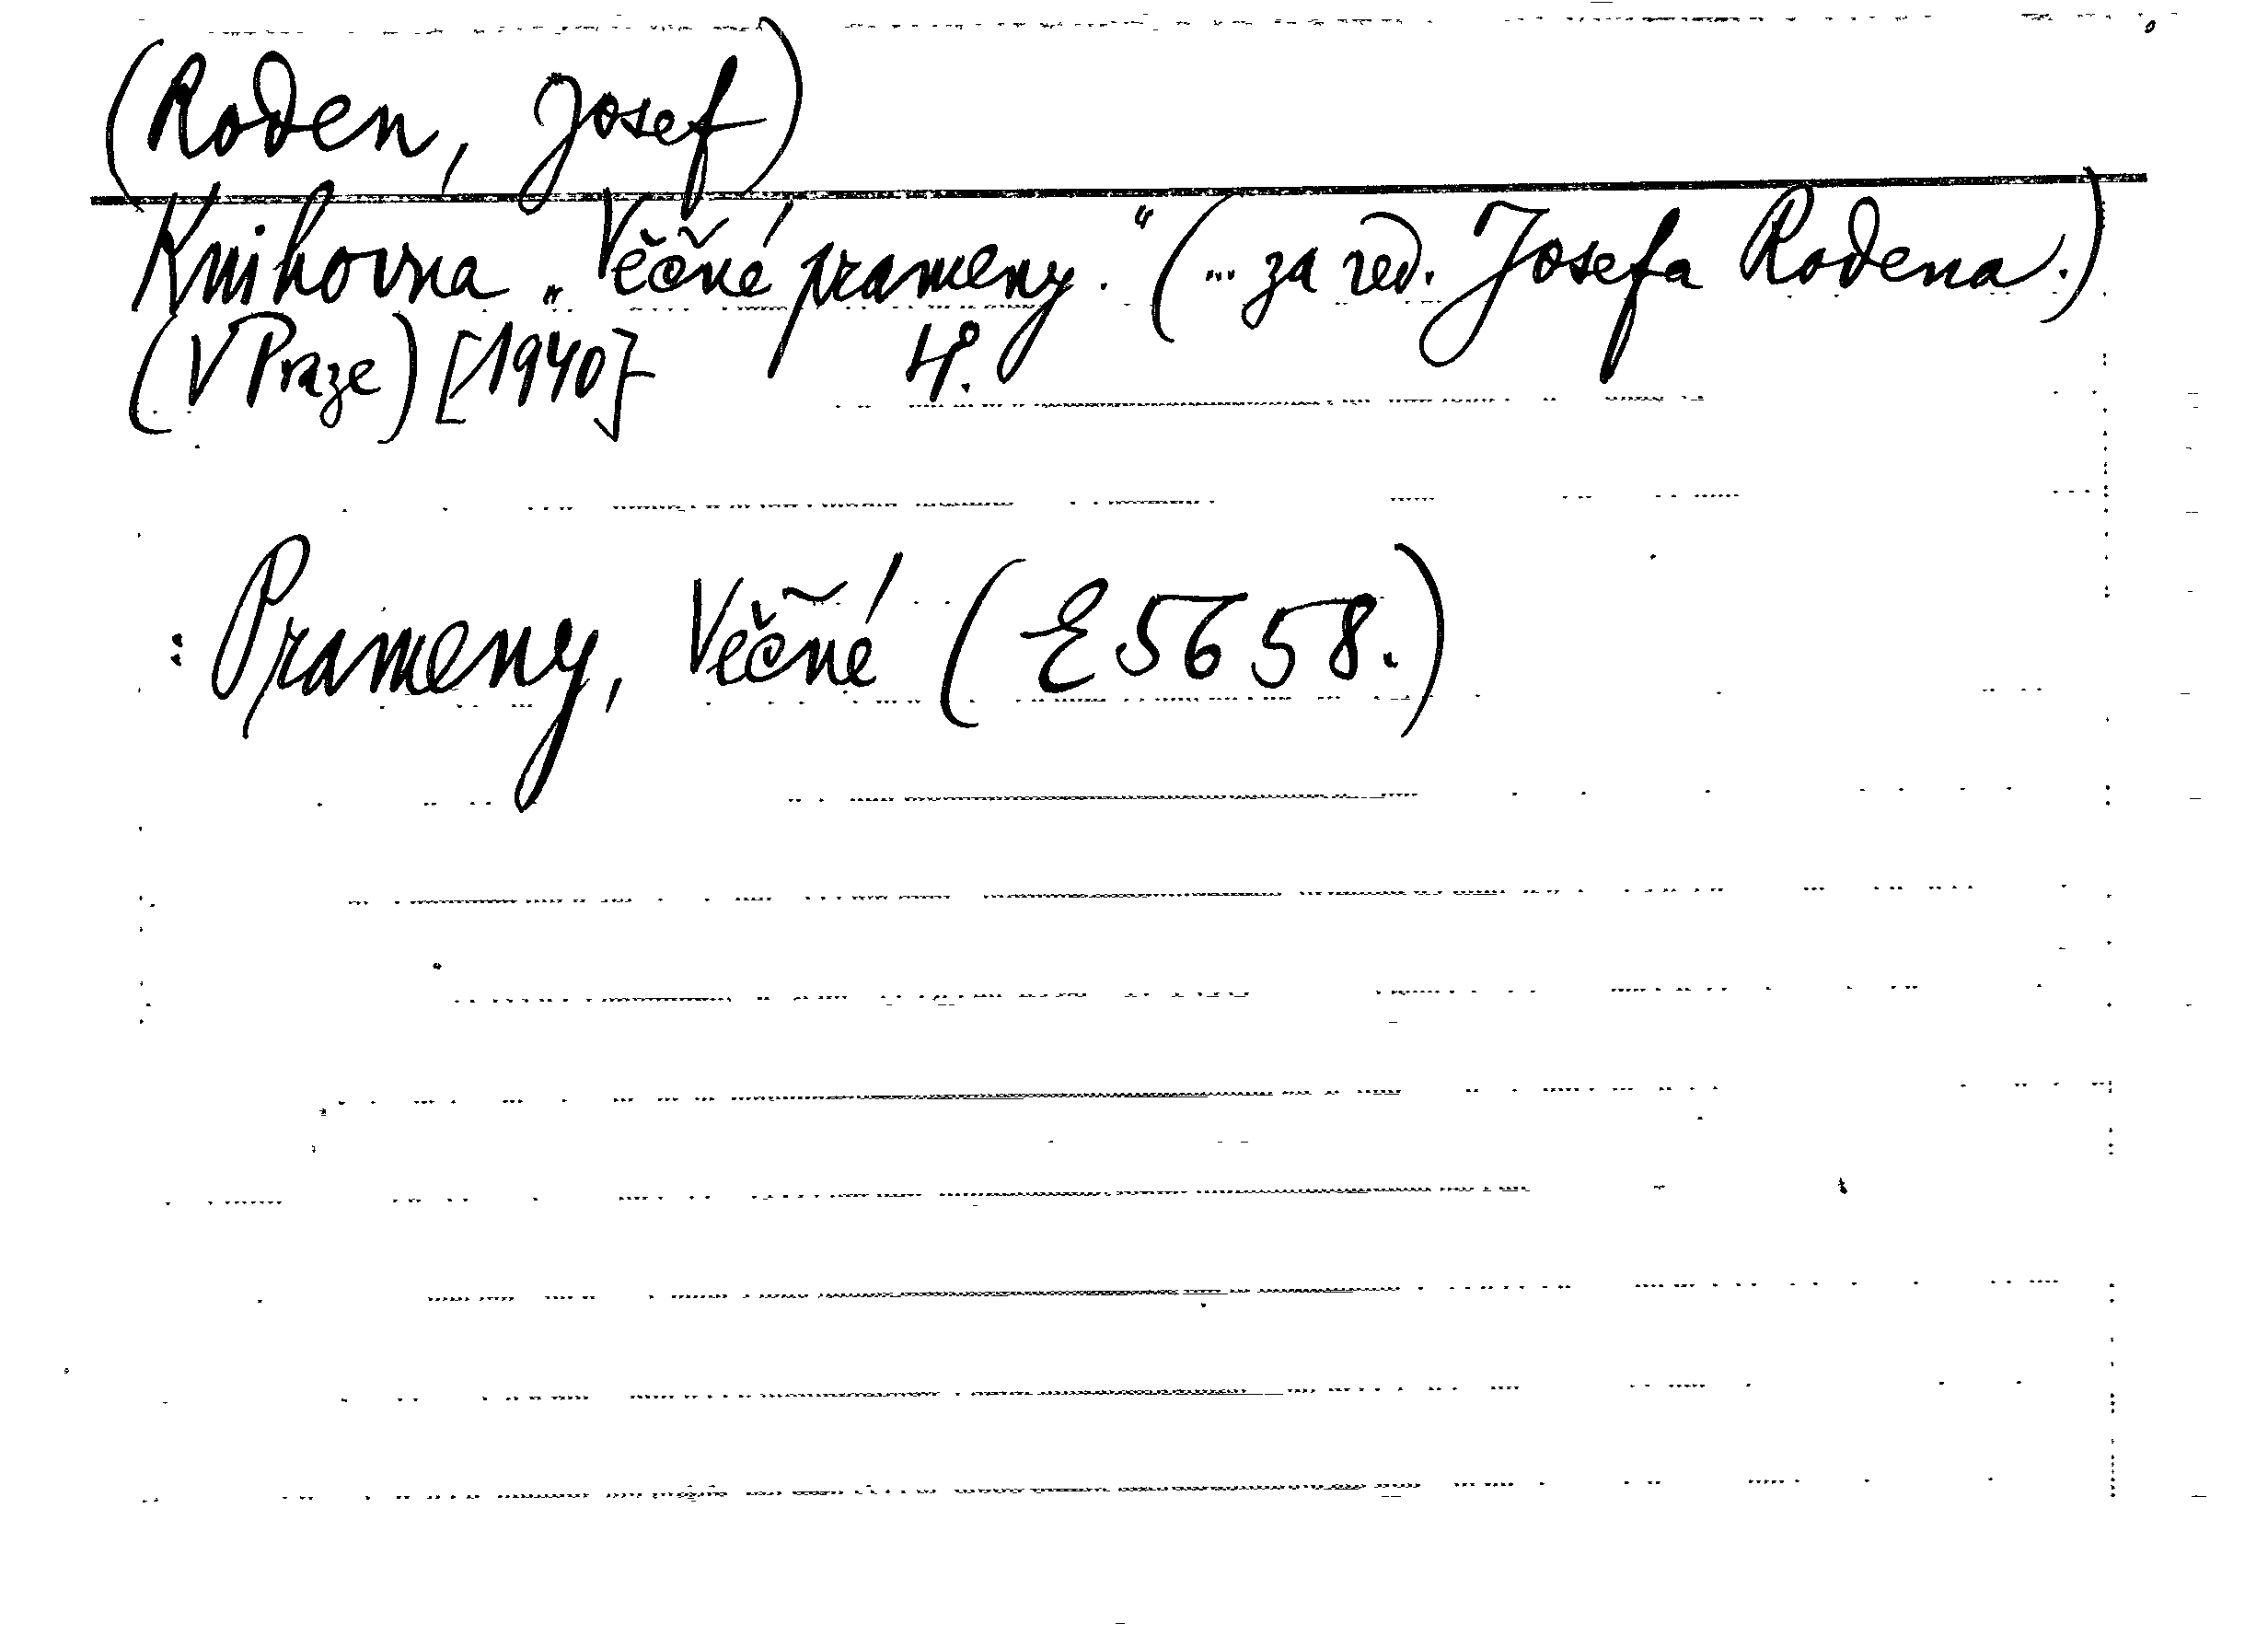 (Roden, Josef)
Knihovna „Věčné prameny.“ (... za red. Josefa Rodena.)
(V Praze) [1940]- 4°.
: Prameny, Věčné (E 5658.)